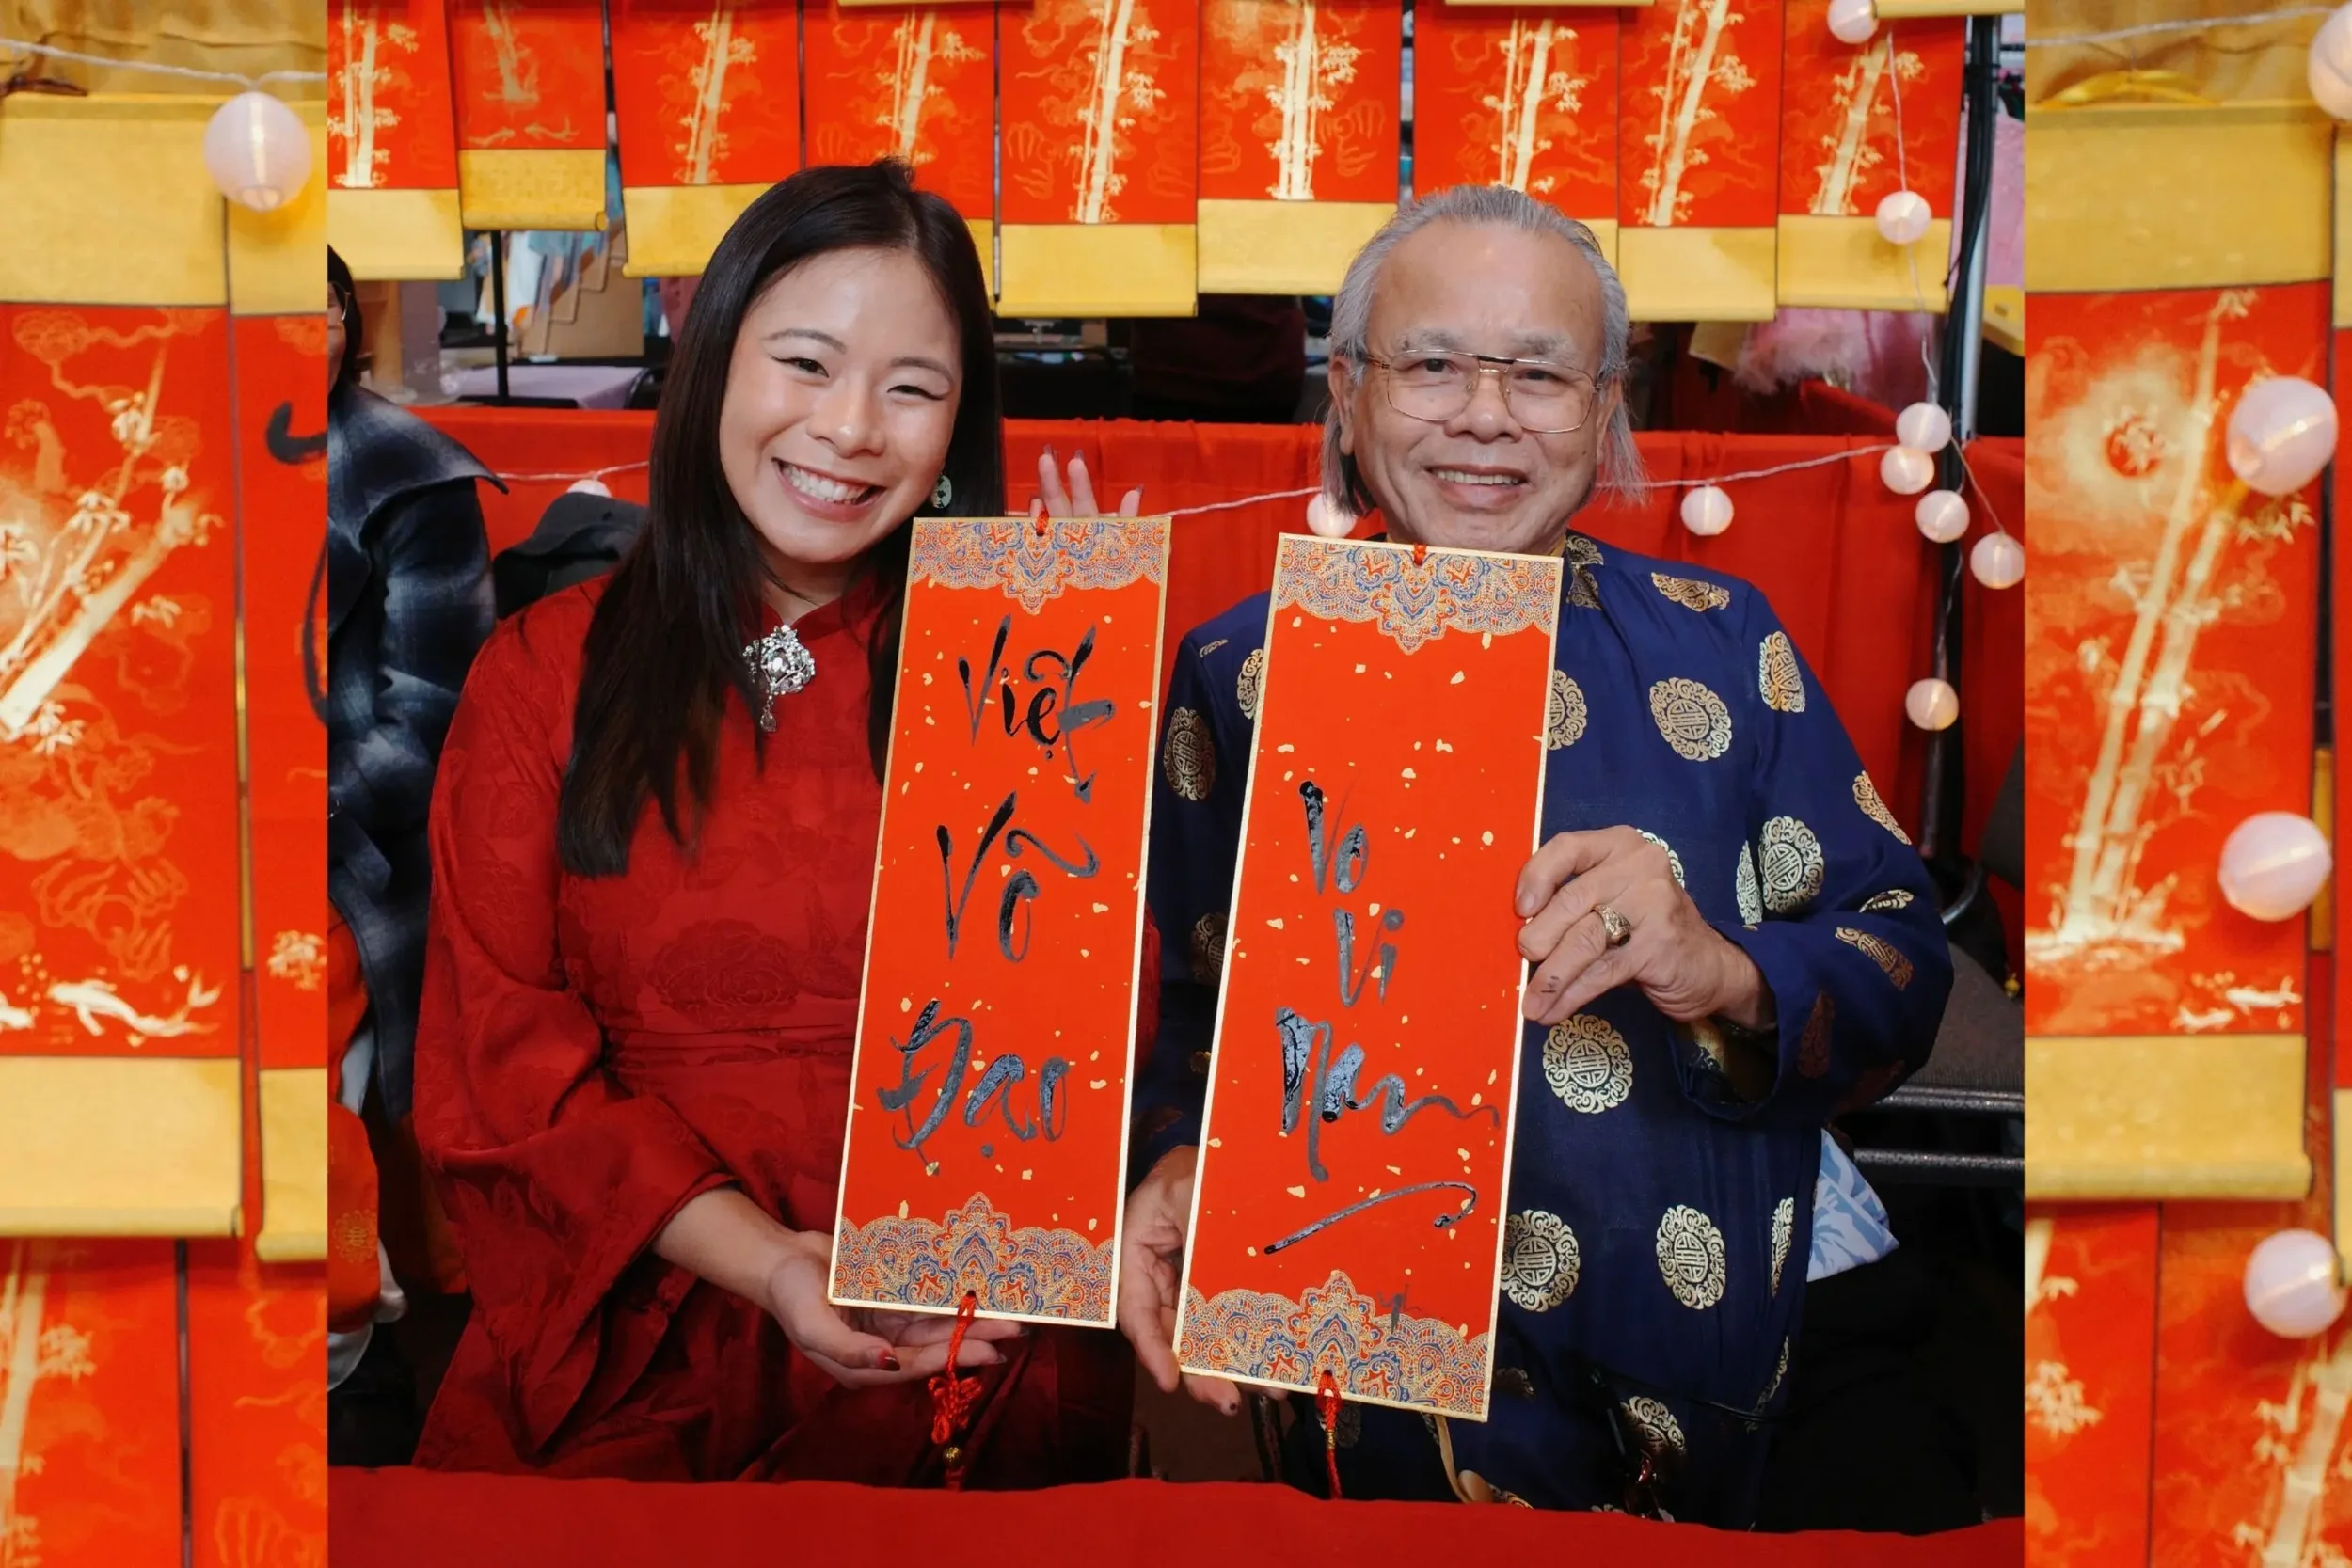 Việt
Võ
Đạo
Vo
Vi
Nam